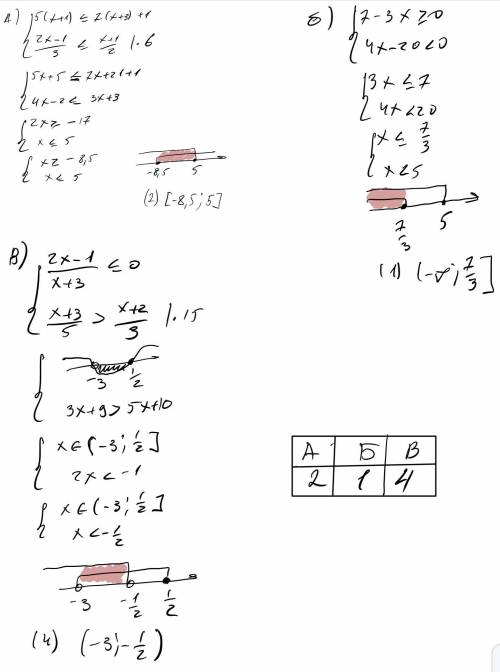 А) { 5(x+1) ≤ 7(x+3)+1
{ 2x-1/3 ≤ x+1/2 |·6
{ 5x+5 ≤ 7x+21+1
{ 4x-2 ≤ 3x+3
{ 2x ≥ -17
{ x ≤ 5
{ x ≥ -8,5
{ x ≤ 5
-8,5 5
(2) [-8,5; 5]
Б) { 7-3x ≥ 0
{ 4x-20<0
{ 3x ≤ 7
{ 4x<20
{ x ≤ 7/3
{ x<5
7/3 5
(1) (-∞; 7/3]
В) { 2x-1/x+3 ≤ 0
{ x+3/5 > x+2/3 |·15
{ -3 1/2
{ 3x+9>5x+10
{ x∈(-3; 1/2]
{ 2x<-1
{ x∈(-3; 1/2]
{ x<-1/2
-3 -1/2 1/2
(4) (-3; -1/2)
А Б В
2 1 4